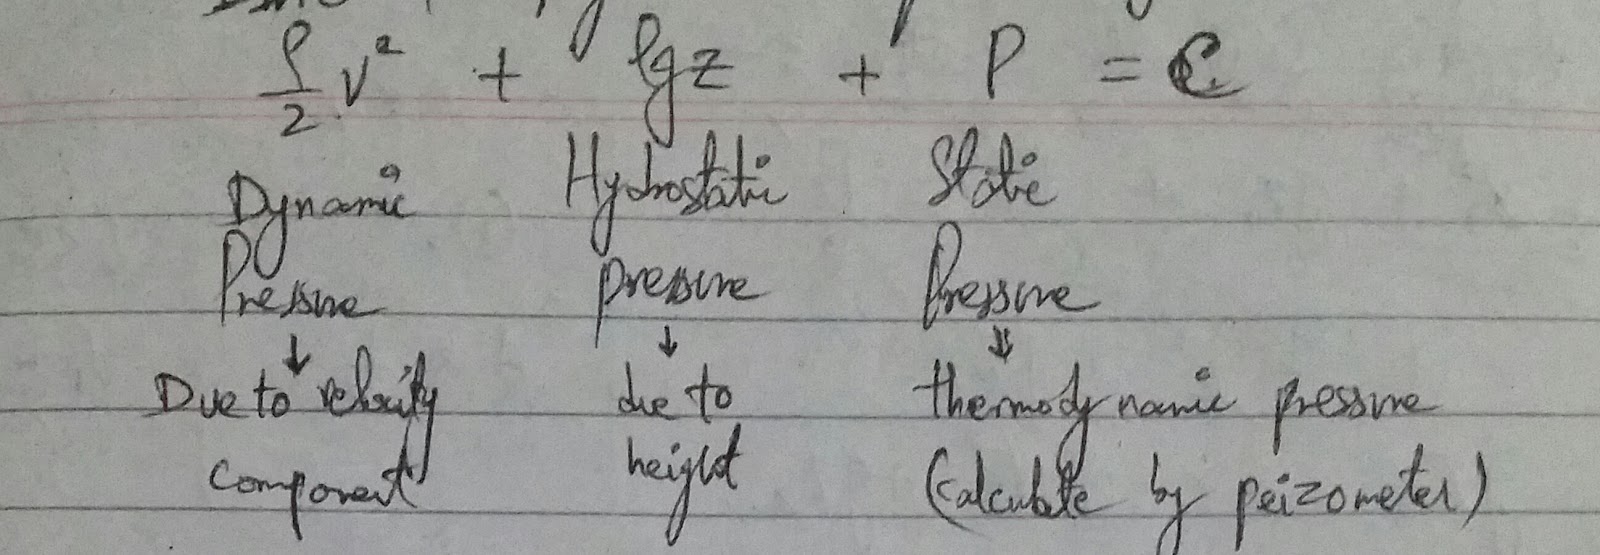 ρ/2 V² + ρgz + P = C
Dynamic Hydrostatic Static
Pressure pressure Pressure
↓ ↓ ⇓
Due to velocity due to thermodynamic pressure
component height (calculate by peizometer)